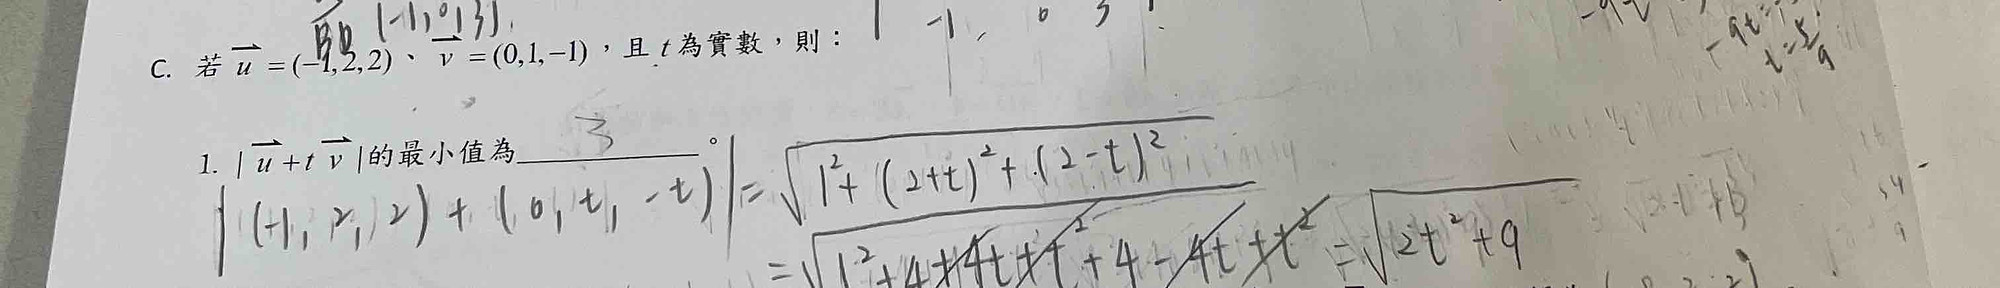 (-1,0,3).
-1, 0 3
C. 若 u = (-1,2,2)、 v = (0,1,-1),且 t 為實數,則:
-9t=
t=5/9
1. | u + t v |的最小值為 3 。
|(-1, 2, 2) + (0, t, -t)| = √(1²+(2+t)²+(2-t)²)
= √(1²+4+4t+t²+4-4t+t²) = √(2t²+9)